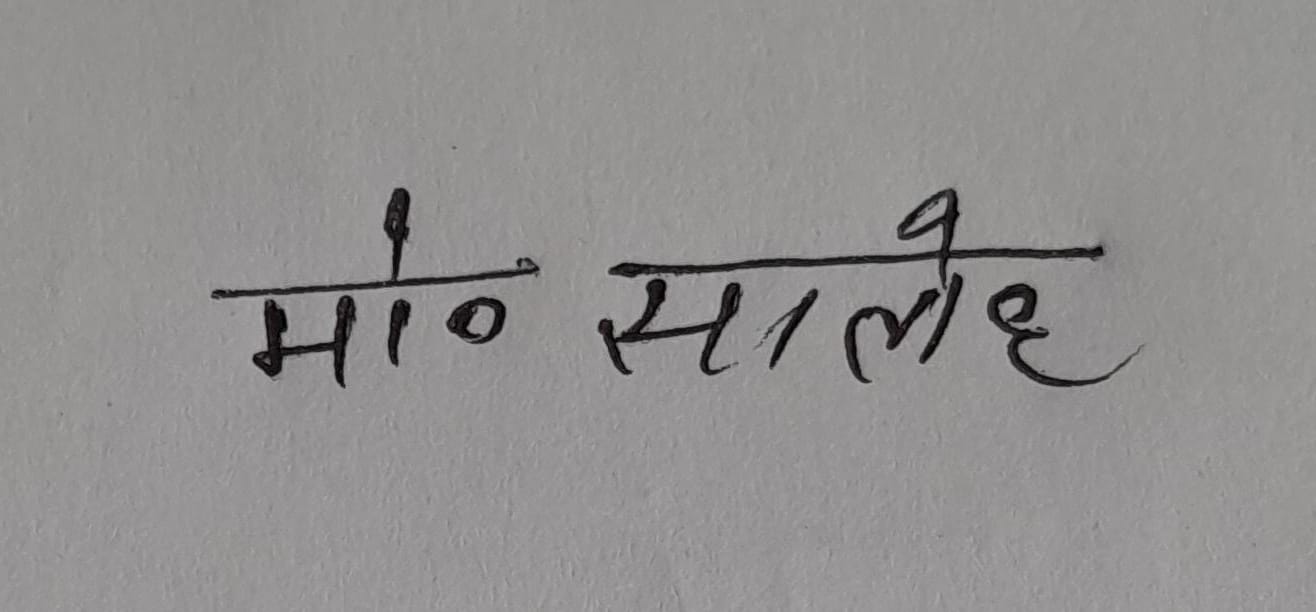 मो० सालीह